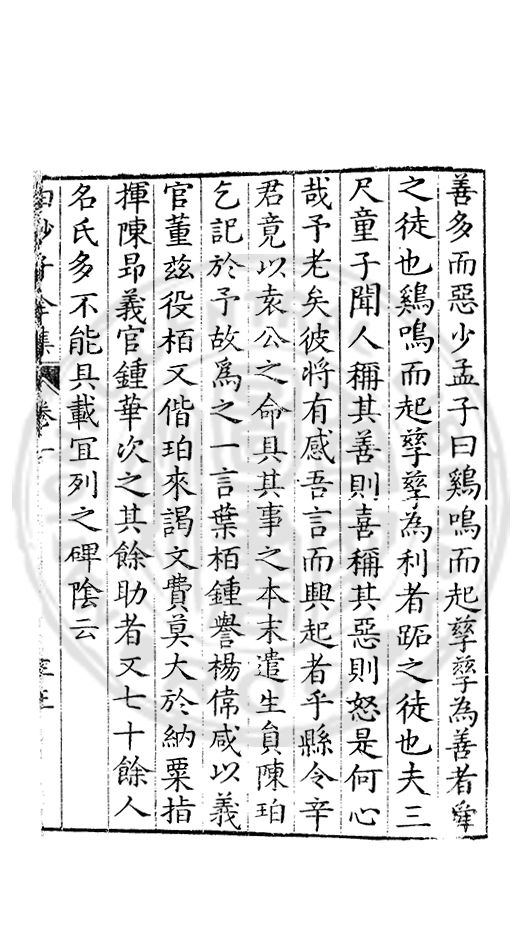 善多而惡少孟子曰鷄鳴而起孳孳為善者舜
之徒也鷄鳴而起孳孳為利者跖之徒也夫三
尺童子聞人稱其善則喜稱其惡則怒是何心
哉予老矣彼將有感吾言而興起者乎縣令辛
君竟以袁公之命具其事之本末遣生員陳珀
乞記於予故爲之一言葉栢鍾譽楊偉咸以義
官董兹役栢又偕珀來謁文費莫大於納粟指
揮陳昂義官鍾華次之其餘助者又七十餘人
名氏多不能具載冝列之碑隂云
白沙子全集 卷一